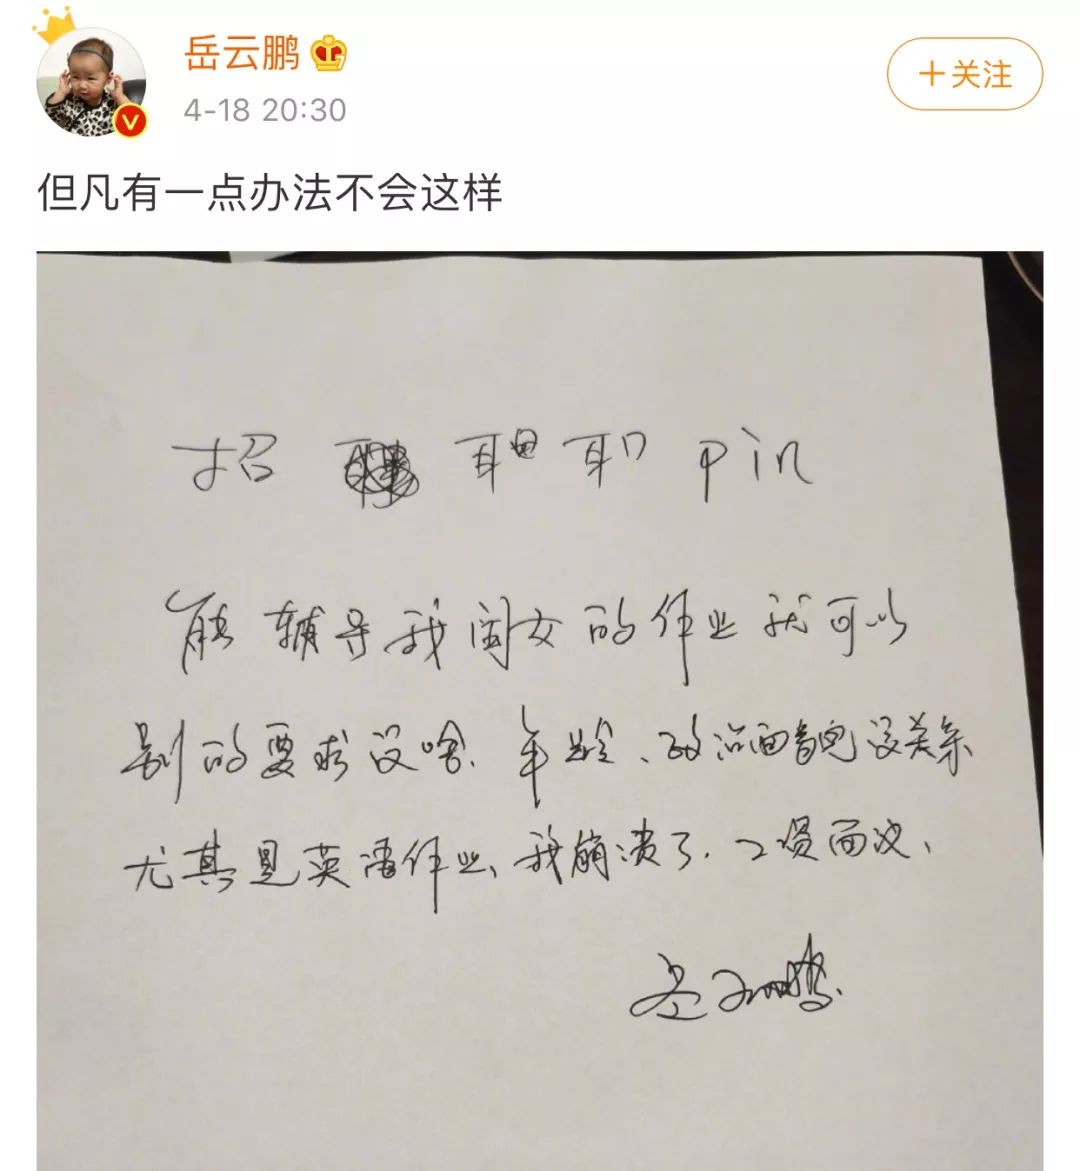 岳云鹏
4-18 20:30
+关注
但凡有一点办法不会这样
招 职 pin
能辅导我闺女的作业就可以
别的要求没啥、年龄、政治面貌没关系
尤其是英语作业、我崩溃了、工资面议、
岳云鹏